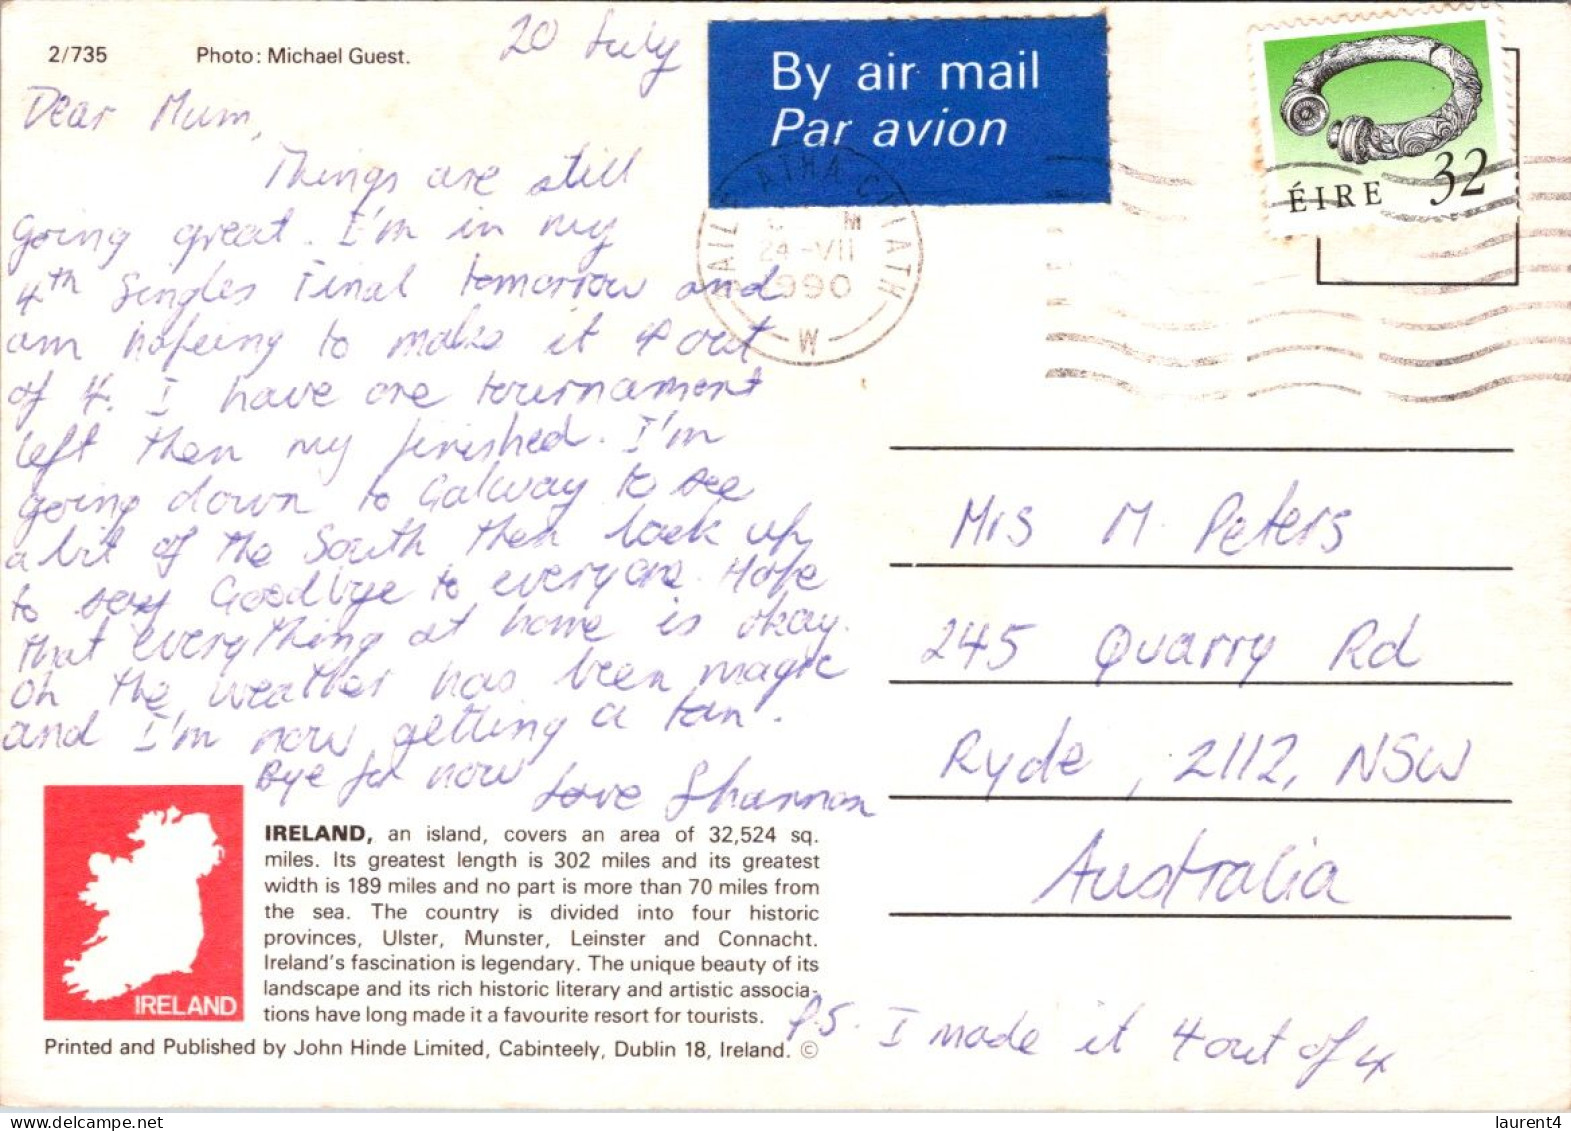 2/735 Photo: Michael Guest.
20 July
By air mail
Par avion
ÉIRE 32
BAILE ATHA CLIATH
24-VII
1990
W
Dear Mum,
Things are still
going great. I'm in my
4th Singles Final tomorrow and
am hopeing to make it 4 out
of 4. I have one tournament
left then my finished. I'm
going down to Galway to see
a bit of the South then back up
to say Goodbye to everyone. Hope
that everything at home is okay.
Oh the weather has been magic
and I'm now getting a tan.
Bye for now
Love Shannon
Mrs M. Peters
245 Quarry Rd
Ryde, 2112, NSW
Australia
IRELAND
IRELAND, an island, covers an area of 32,524 sq.
miles. Its greatest length is 302 miles and its greatest
width is 189 miles and no part is more than 70 miles from
the sea. The country is divided into four historic
provinces, Ulster, Munster, Leinster and Connacht.
Ireland's fascination is legendary. The unique beauty of its
landscape and its rich historic literary and artistic associa-
tions have long made it a favourite resort for tourists.
Printed and Published by John Hinde Limited, Cabinteely, Dublin 18, Ireland. ©
P.S. I made it 4 out of 4
delcampe.net
laurent4